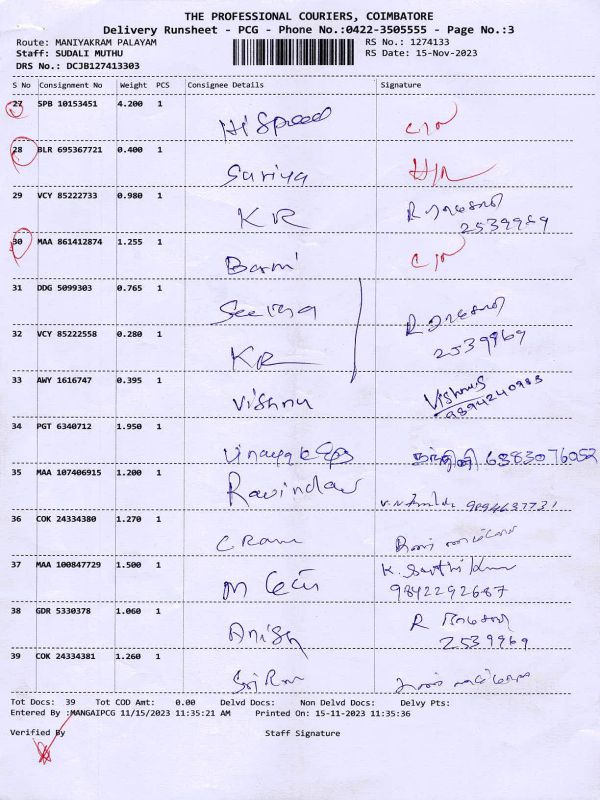 THE PROFESSIONAL COURIERS, COIMBATORE
Delivery Runsheet - PCG - Phone No.:0422-3505555 - Page No.:3
Route: MANIYAKRAM PALAYAM RS No.: 1274133
Staff: SUDALI MUTHU RS Date: 15-Nov-2023
DRS No.: DCJB127413303
S No Consignment No Weight PCS Consignee Details Signature
27 SPB 10153451 4.200 1
Hi Speed
28 BLR 695367721 0.400 1
Suriya
29 VCY 85222733 0.980 1
KR R
2539969
30 MAA 861412874 1.255 1
31 DDG 5099303 0.765 1
R
32 VCY 85222558 0.280 1
KR 2539969
33 AWY 1616747 0.395 1
Vishnu Vishnu.S
9894240983
34 PGT 6340712 1.950 1
Vinayak 6383076052
35 MAA 107406915 1.200 1
Ravindar 9894637731
36 COK 24334380 1.270 1
C Ram
37 MAA 100847729 1.500 1
K. Sakthi Kumar
9842292687
38 GDR 5330378 1.060 1
Anish R
2539969
39 COK 24334381 1.260 1
Sri Ram
Tot Docs: 39 Tot COD Amt: 0.00 Delvd Docs: Non Delvd Docs: Delvy Pts:
Entered By :MANGAIPCG 11/15/2023 11:35:21 AM Printed On: 15-11-2023 11:35:36
Verified By Staff Signature